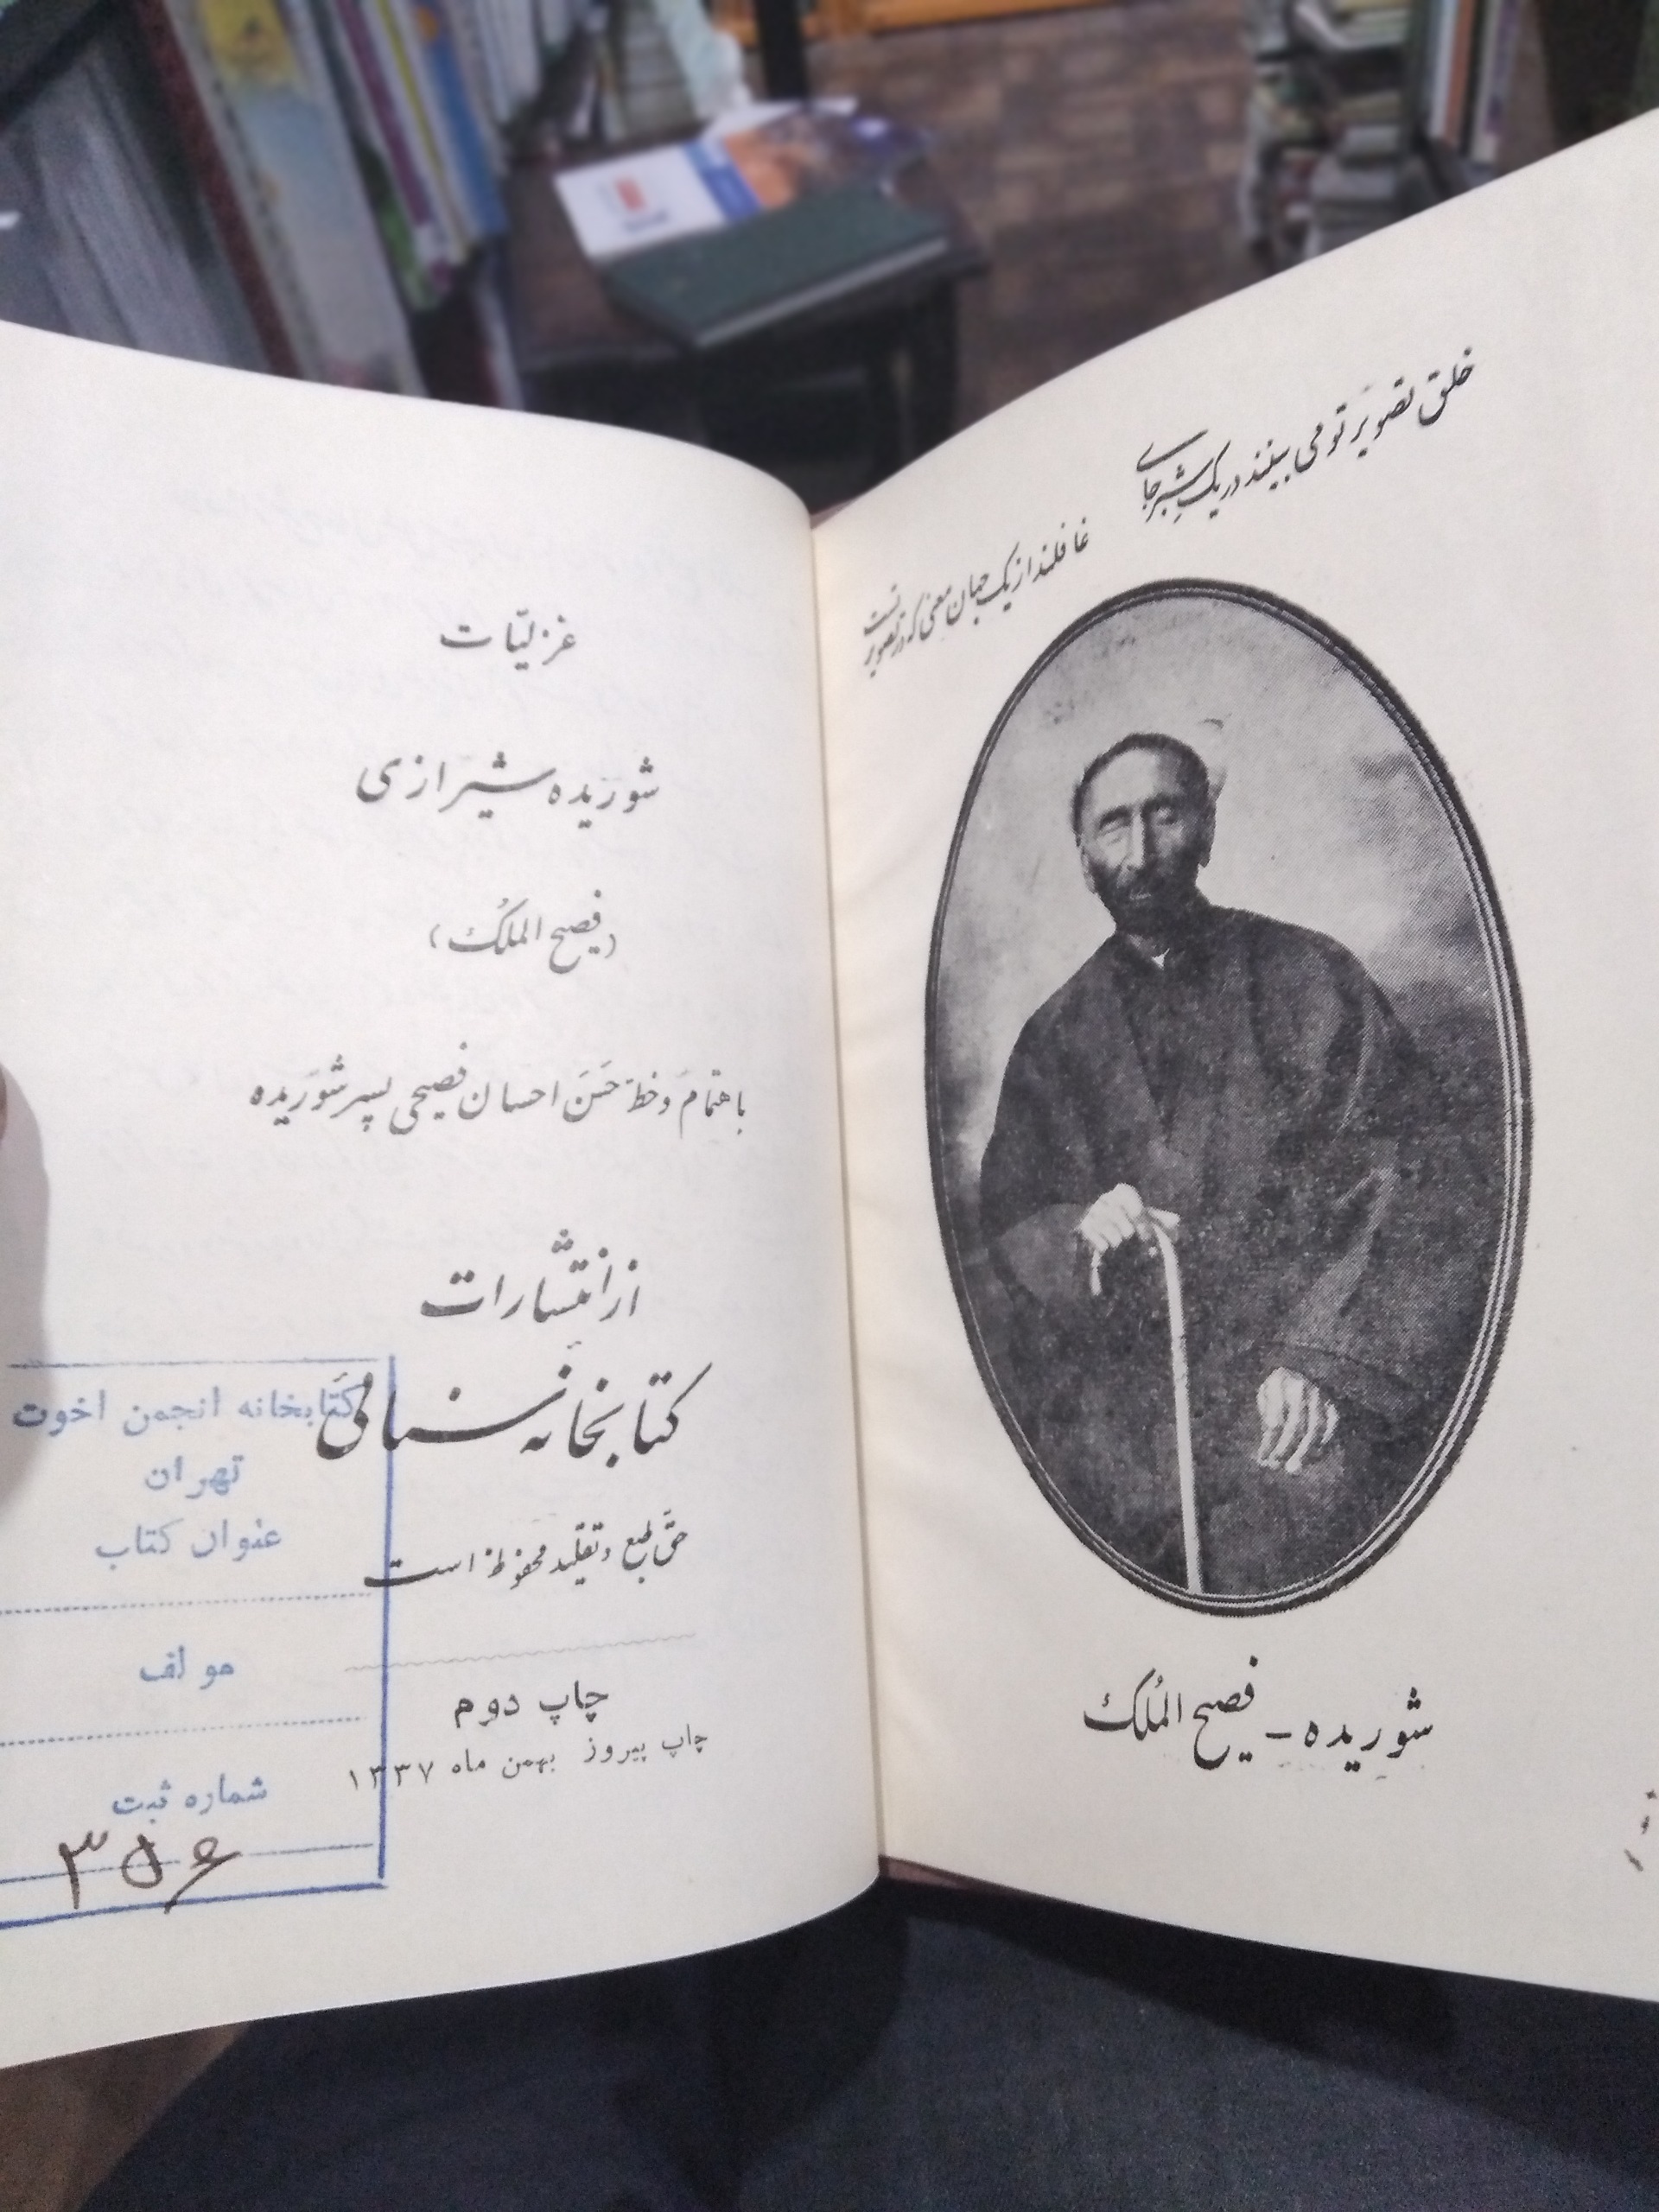 خلق تصویر تو می بینند در یک شبر جای
غافلند از یک جهان معنی که در تصویر تست
شوریده – فصیح المُلک
غزلیّات
شوریده شیرازی
(فصیح المُلک)
باهتمام و خطّ حَسَن احسان فصیحی پسر شوریده
از انتشارات
کتابخانه سنائی
حقّ طبع و تقلید محفوظ است
چاپ دوم
چاپ پیروز بهمن ماه ۱۳۳۷
کتابخانه انجمن اخوت
تهران
عنوان کتاب
مولف
شماره ثبت
۳۵۶